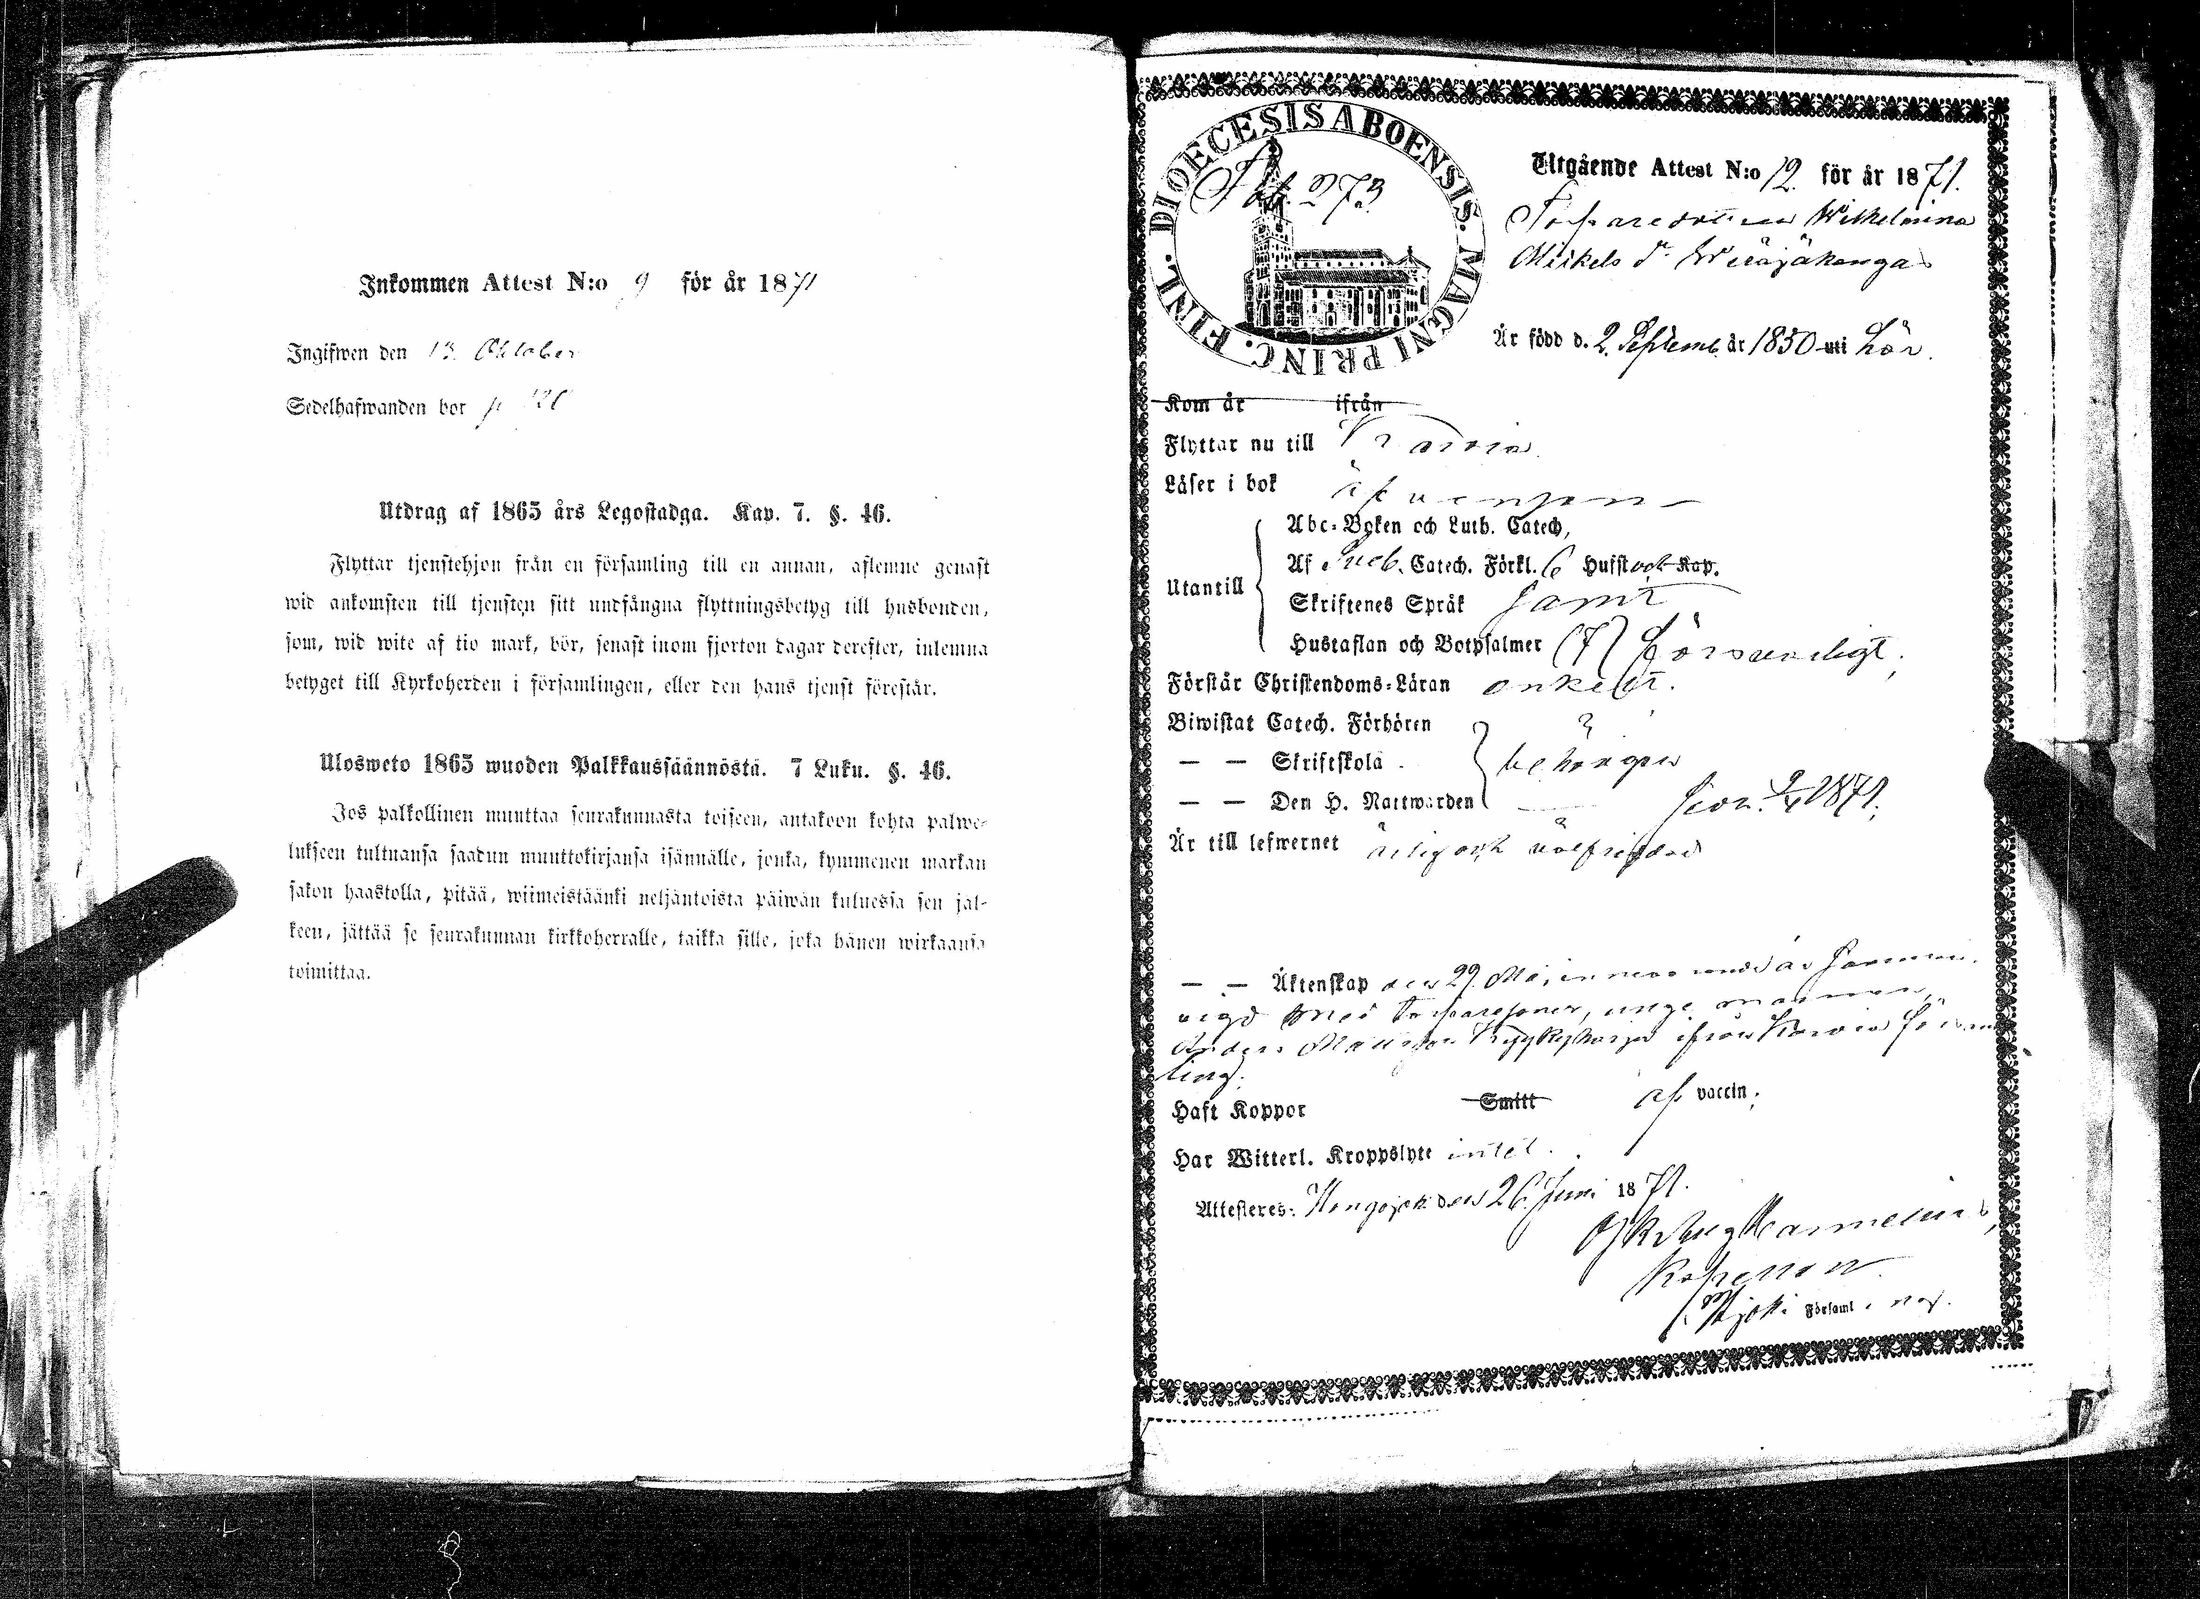 Inkommen Attest N:o 9 för år 1871
Ingifwen den 13 Oktober
Sedelhafwanden bor p.
Utdrag af 1865 års Legostadga. Kap. 7. §. 46.
Flyttar tjenstehjon från en församling till en annan, aflemne genast
wid ankomsten till tjensten sitt undfångna flyttningsbetyg till husbonden,
som, wid wite af tio mark, bör, senast inom fjorton dagar derefter, inlemna
betyget till Kyrkoherden i församlingen, eller den hans tjenst förestår.
Ulosweto 1865 wuoden Palkkaussäännöstä. 7 Luku. §. 46.
Jos palkollinen muuttaa seurakunnasta toiseen, antakoon kohta palwe-
lukseen tultuansa saadun muuttokirjansa isännälle, jonka, kymmenen markan
sakon haastolla, pitää, wiimeistäänki neljäntoista päiwän kuluessa sen jäl-
keen, jättää se seurakunnan kirkkoherralle, taikka sille, joka hänen wirkaansa
toimittaa.
DIOECESIS ABOENSIS. MAGNI PRINC. FINL.
Pag. 273.
Utgående Attest N:o 12. för år 1871.
Torparedottren Wilhelmina
Mikels dr
Är född d. 2. Septemb. år 1850 uti här.
Kom år ifrån
Flyttar nu till
Läser i bok
Abc-Boken och Luth. Catech,
Utantill
Af Sveb. Catech. Förkl. 6 Hufst
Skriftenes Språk samt
Hustaflan och Botpsalmer (7) försvarligt.
Förstår Christendoms-Läran enkelt.
Biwistat Catech. Förhören
— — Skriftskola behörigen
— — Den H. Nattwarden 1871.
Är till lefwernet ärlig och välfrejdad
— — Äktenskap den 29. Maj innevarande år
vigd med torparesonen, unge mannen
Anders Mattsson ifrån försam
ling.
Haft Koppor Smitt af vaccin.
Har Witterl. Kroppslyte intet.
Attesteres: Hongojoki den 26. Juni 1871.
Församl.